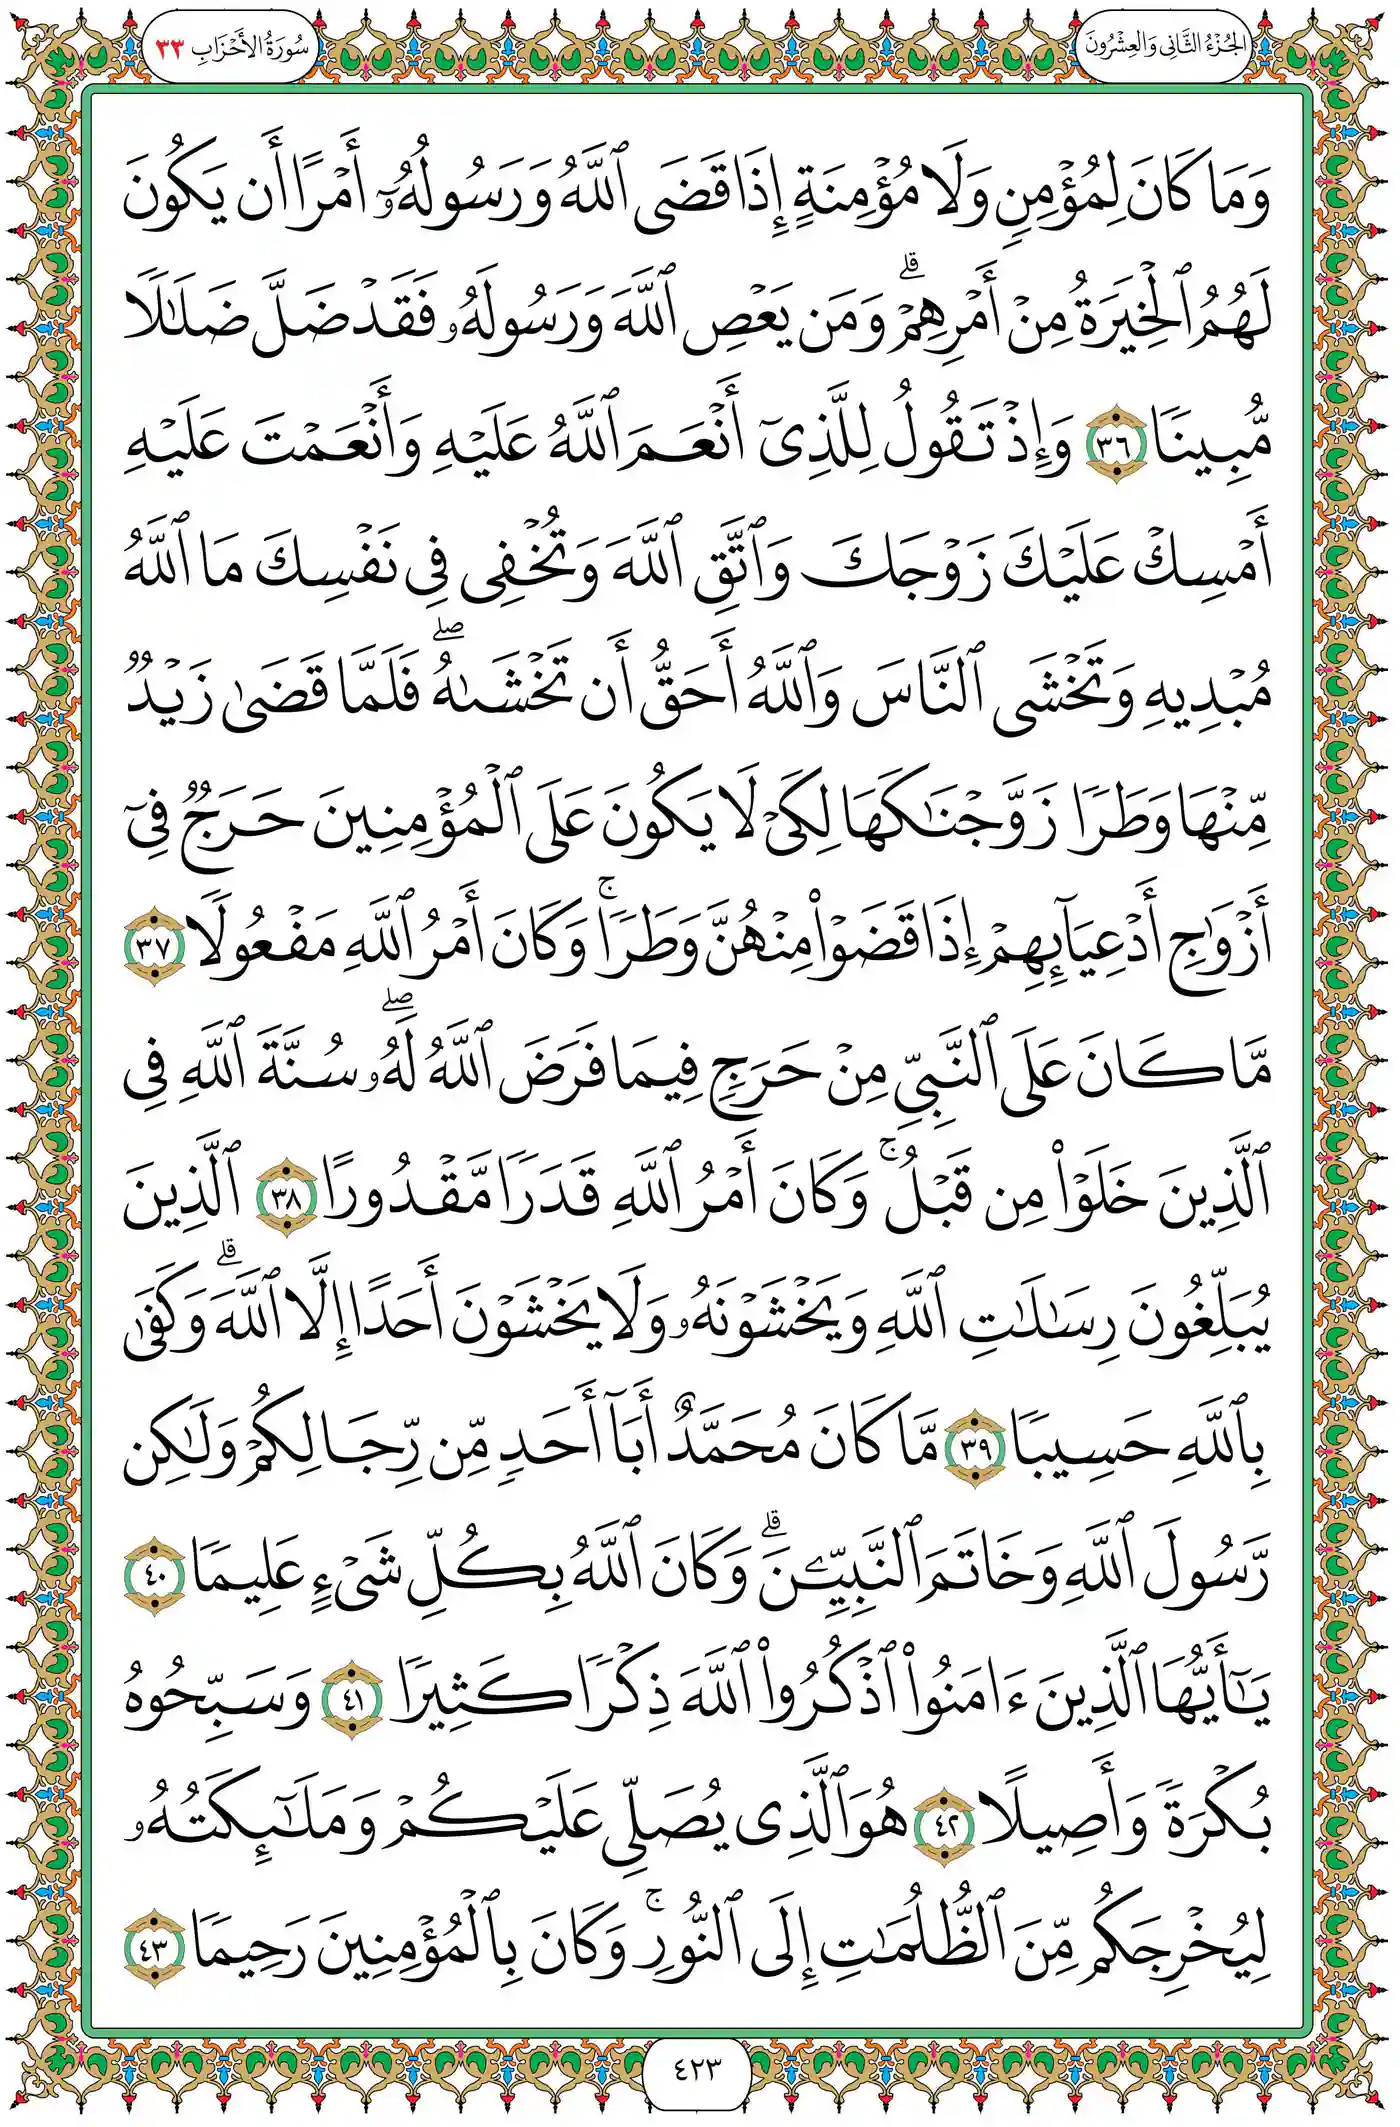 الجُزْءُ الثَّانِي وَالعِشْرُونَ
سُورَةُ الأَحْزَابِ ٣٣
وَمَا كَانَ لِمُؤۡمِنٖ وَلَا مُؤۡمِنَةٍ إِذَا قَضَى ٱللَّهُ وَرَسُولُهُۥٓ أَمۡرًا أَن يَكُونَ
لَهُمُ ٱلۡخِيَرَةُ مِنۡ أَمۡرِهِمۡۗ وَمَن يَعۡصِ ٱللَّهَ وَرَسُولَهُۥ فَقَدۡ ضَلَّ ضَلَٰلٗا
مُّبِينٗا ٣٦ وَإِذۡ تَقُولُ لِلَّذِيٓ أَنۡعَمَ ٱللَّهُ عَلَيۡهِ وَأَنۡعَمۡتَ عَلَيۡهِ
أَمۡسِكۡ عَلَيۡكَ زَوۡجَكَ وَٱتَّقِ ٱللَّهَ وَتُخۡفِي فِي نَفۡسِكَ مَا ٱللَّهُ
مُبۡدِيهِ وَتَخۡشَى ٱلنَّاسَ وَٱللَّهُ أَحَقُّ أَن تَخۡشَىٰهُۖ فَلَمَّا قَضَىٰ زَيۡدٞ
مِّنۡهَا وَطَرٗا زَوَّجۡنَٰكَهَا لِكَيۡ لَا يَكُونَ عَلَى ٱلۡمُؤۡمِنِينَ حَرَجٞ فِيٓ
أَزۡوَٰجِ أَدۡعِيَآئِهِمۡ إِذَا قَضَوۡاْ مِنۡهُنَّ وَطَرٗاۚ وَكَانَ أَمۡرُ ٱللَّهِ مَفۡعُولٗا ٣٧
مَّا كَانَ عَلَى ٱلنَّبِيِّ مِنۡ حَرَجٖ فِيمَا فَرَضَ ٱللَّهُ لَهُۥۖ سُنَّةَ ٱللَّهِ فِي
ٱلَّذِينَ خَلَوۡاْ مِن قَبۡلُۚ وَكَانَ أَمۡرُ ٱللَّهِ قَدَرٗا مَّقۡدُورًا ٣٨ ٱلَّذِينَ
يُبَلِّغُونَ رِسَٰلَٰتِ ٱللَّهِ وَيَخۡشَوۡنَهُۥ وَلَا يَخۡشَوۡنَ أَحَدًا إِلَّا ٱللَّهَۗ وَكَفَىٰ
بِٱللَّهِ حَسِيبٗا ٣٩ مَّا كَانَ مُحَمَّدٌ أَبَآ أَحَدٖ مِّن رِّجَالِكُمۡ وَلَٰكِن
رَّسُولَ ٱللَّهِ وَخَاتَمَ ٱلنَّبِيِّـۧنَۗ وَكَانَ ٱللَّهُ بِكُلِّ شَيۡءٍ عَلِيمٗا ٤٠
يَٰٓأَيُّهَا ٱلَّذِينَ ءَامَنُواْ ٱذۡكُرُواْ ٱللَّهَ ذِكۡرٗا كَثِيرٗا ٤١ وَسَبِّحُوهُ
بُكۡرَةٗ وَأَصِيلًا ٤٢ هُوَ ٱلَّذِي يُصَلِّي عَلَيۡكُمۡ وَمَلَٰٓئِكَتُهُۥ
لِيُخۡرِجَكُم مِّنَ ٱلظُّلُمَٰتِ إِلَى ٱلنُّورِۚ وَكَانَ بِٱلۡمُؤۡمِنِينَ رَحِيمٗا ٤٣
٤٢٣